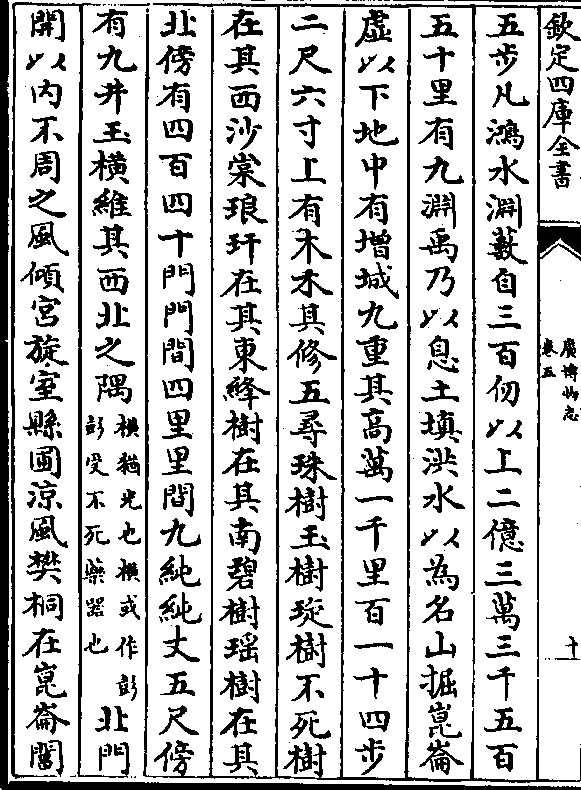 欽定四庫全書
廣博物志
卷五
十
五步凡鴻水淵藪自三百仞以上二億三萬三千五百
五十里有九淵禹乃以息土填洪水以為名山掘崑崙
虛以下地中有增城九重其高萬一千里百一十四步
二尺六寸上有木禾其修五尋珠樹玉樹琁樹不死樹
在其西沙棠琅玕在其東絳樹在其南碧樹瑶樹在其
北傍有四百四十門門間四里里間九純純丈五尺傍
有九井玉橫維其西北之隅橫猶光也橫或作彭彭受不死藥器也北門
開以內不周之風傾宮旋室縣圃涼風樊桐在崑崙閶